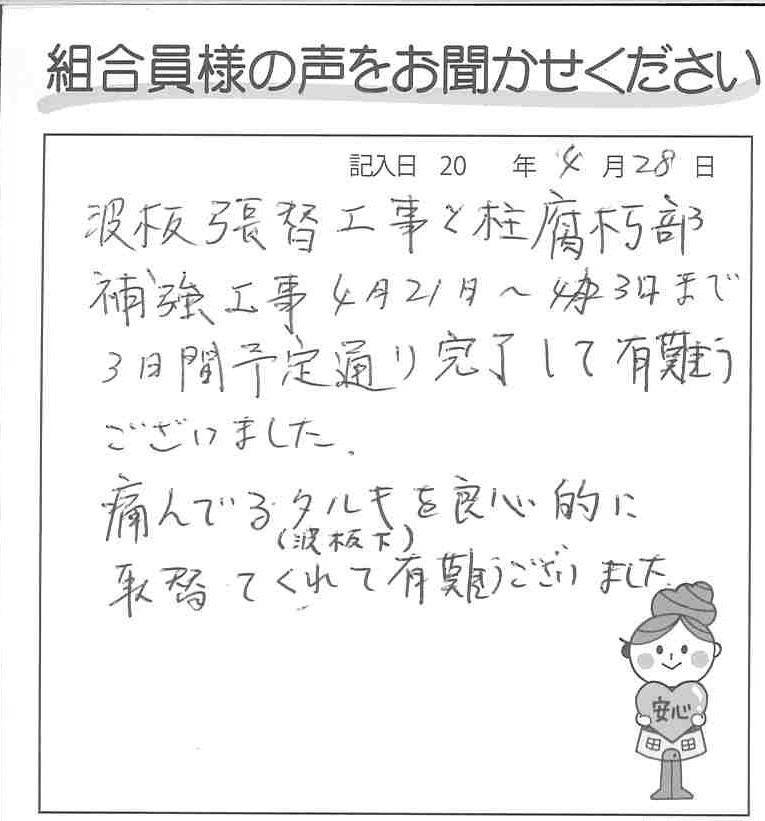 組合員様の声をお聞かせください
記入日 20 年 4 月 28 日
波板張替工事と柱腐朽部
補強工事4月21日～ 3日まで
3日間予定通り完了して有難う
ございました.
痛んでるタルキを良心的に
(波板下)
取替てくれて有難うございました
安心